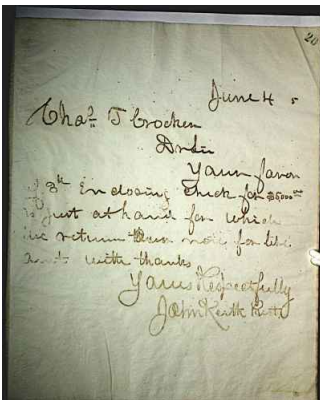 20
June 4 5
Chas T Crocker
Dr Sir
Your favor
of 3rd Enclosing Check for $5000
is just at hand for which
we return our note for like
amt with thanks
Yours Respectfully
John Keith